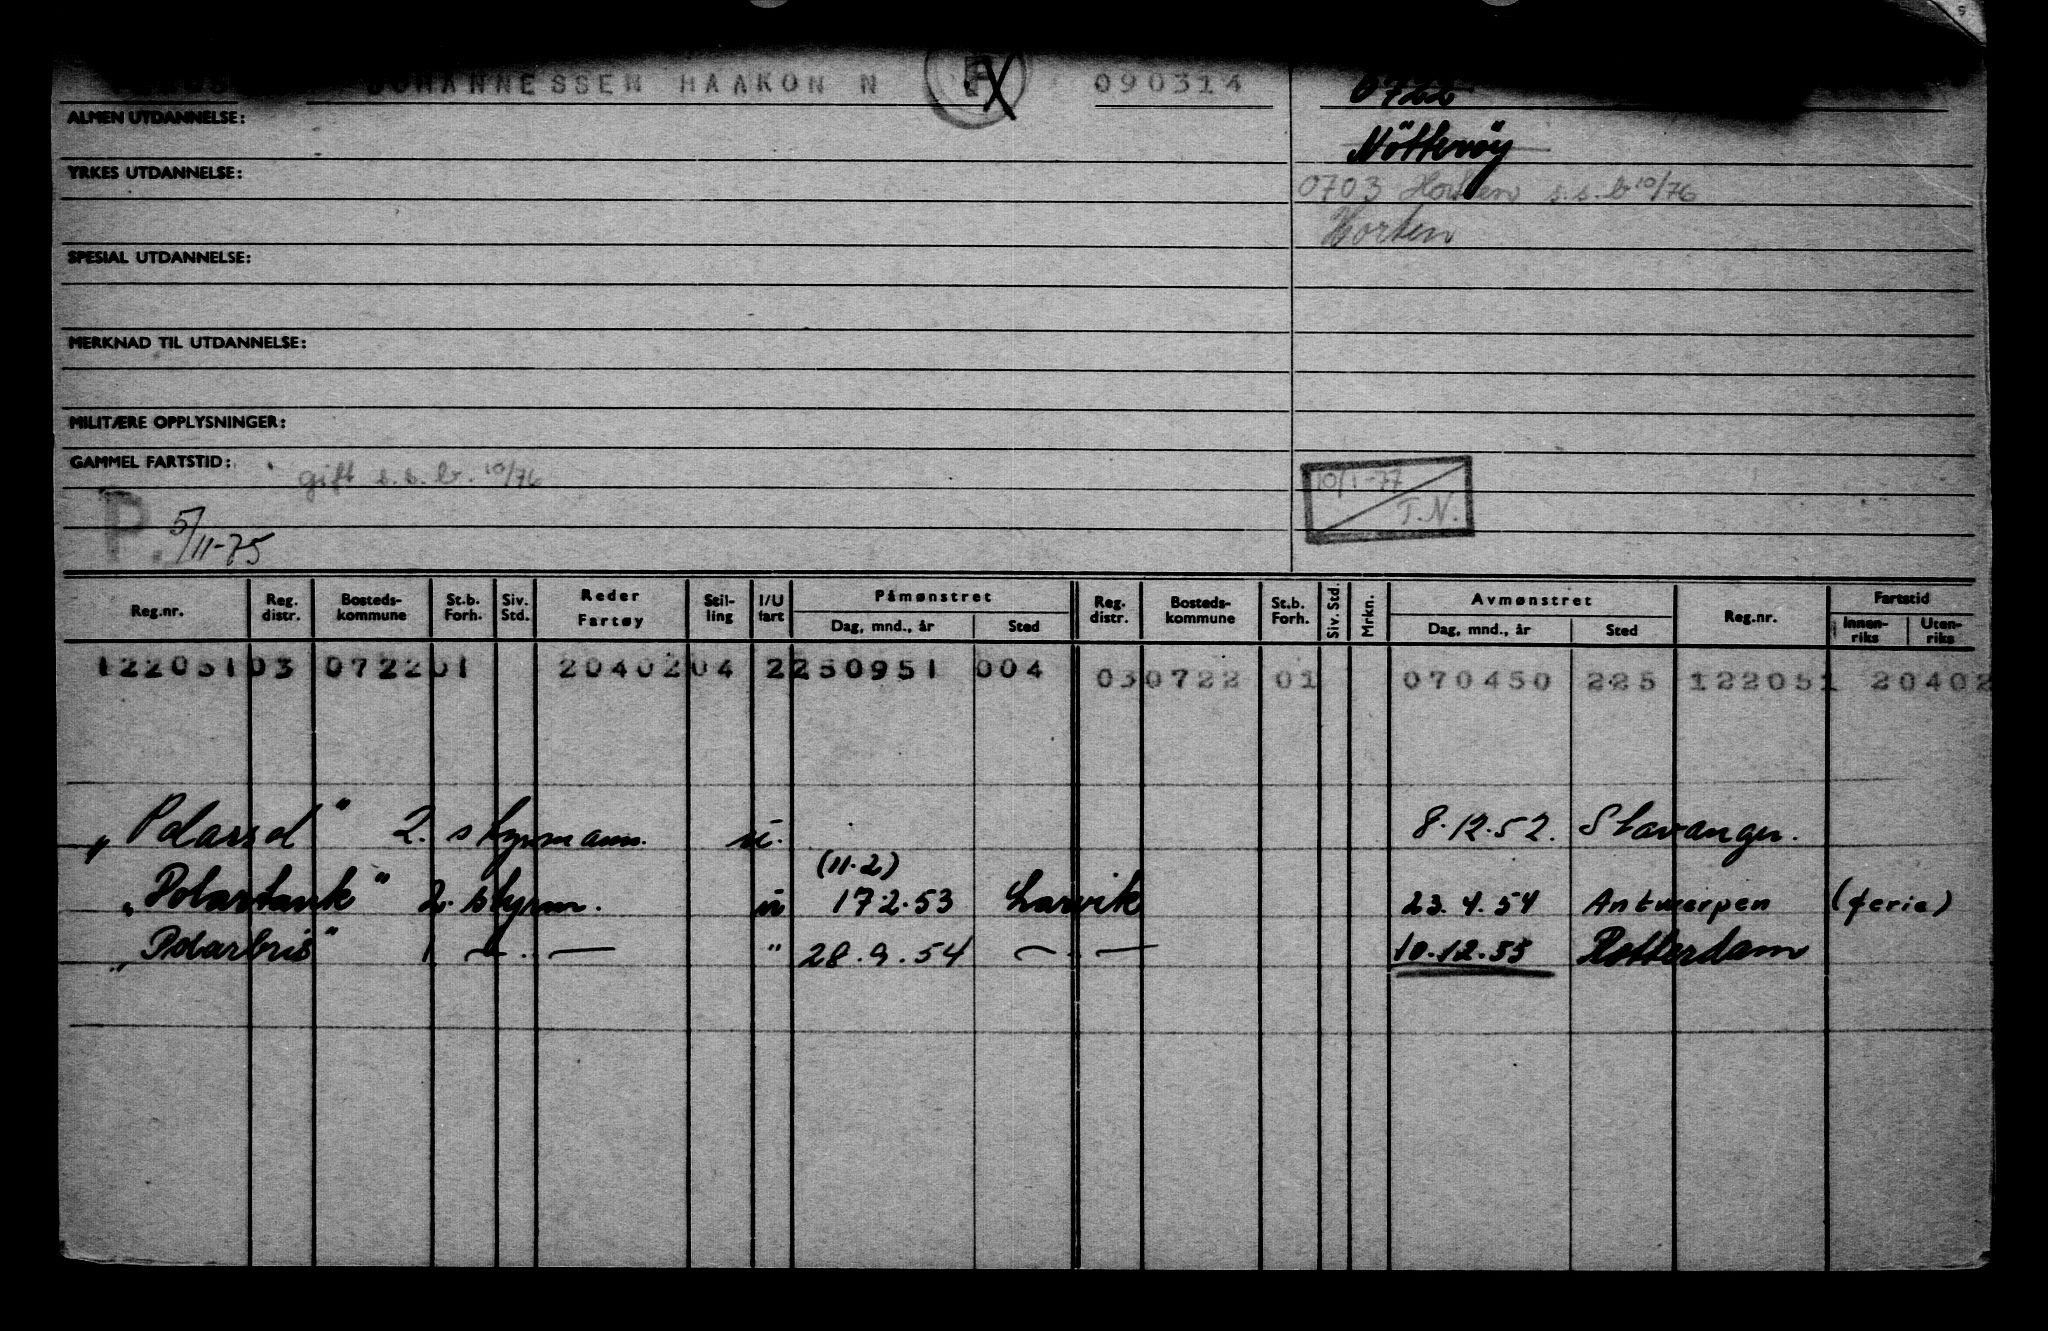 JOHANNESSEN HAAKON N 090314 0722
ALMEN UTDANNELSE:
Nötteröy
YRKES UTDANNELSE:
0703 Horten s.s.b 10/76
Horten
SPESIAL UTDANNELSE:
MERKNAD TIL UTDANNELSE:
MILITÆRE OPPLYSNINGER:
GAMMEL FARTSTID:
gift s.s.b. 10/76
10/1-77
T.N.
P. 5/11-75
Reg.nr. Reg. distr. Bosteds-kommune St.b. Forh. Siv. Std. Reder Fartøy Stil-ling I/U fart Påmønstret Dag, mnd., år Sted Reg. distr. Bosteds-kommune St.b. Forh. Siv. Std. Mrkn. Avmønstret Dag, mnd., år Sted Reg.nr. Fartstid Innen-riks Uten-riks
122051 03 0722 01 20402 04 2 250951 004 03 0722 01 070450 225 122051 20402
"Polarsol" 2. styrmann. u. 8.12.52. Stavanger.
(11.2)
"Polartank" 2. styrm. u 17 2.53 Larvik 23.4.54 Antwerpen (ferie)
"Polarbris" 1 — . — " 28.9.54 — . — 10.12.55 Rotterdam